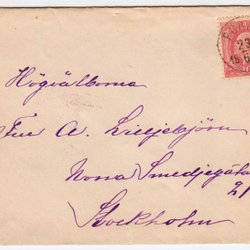 Högvälborna
Fru A. Liljebjörn
Norra Smedjegatan
21
Stockholm